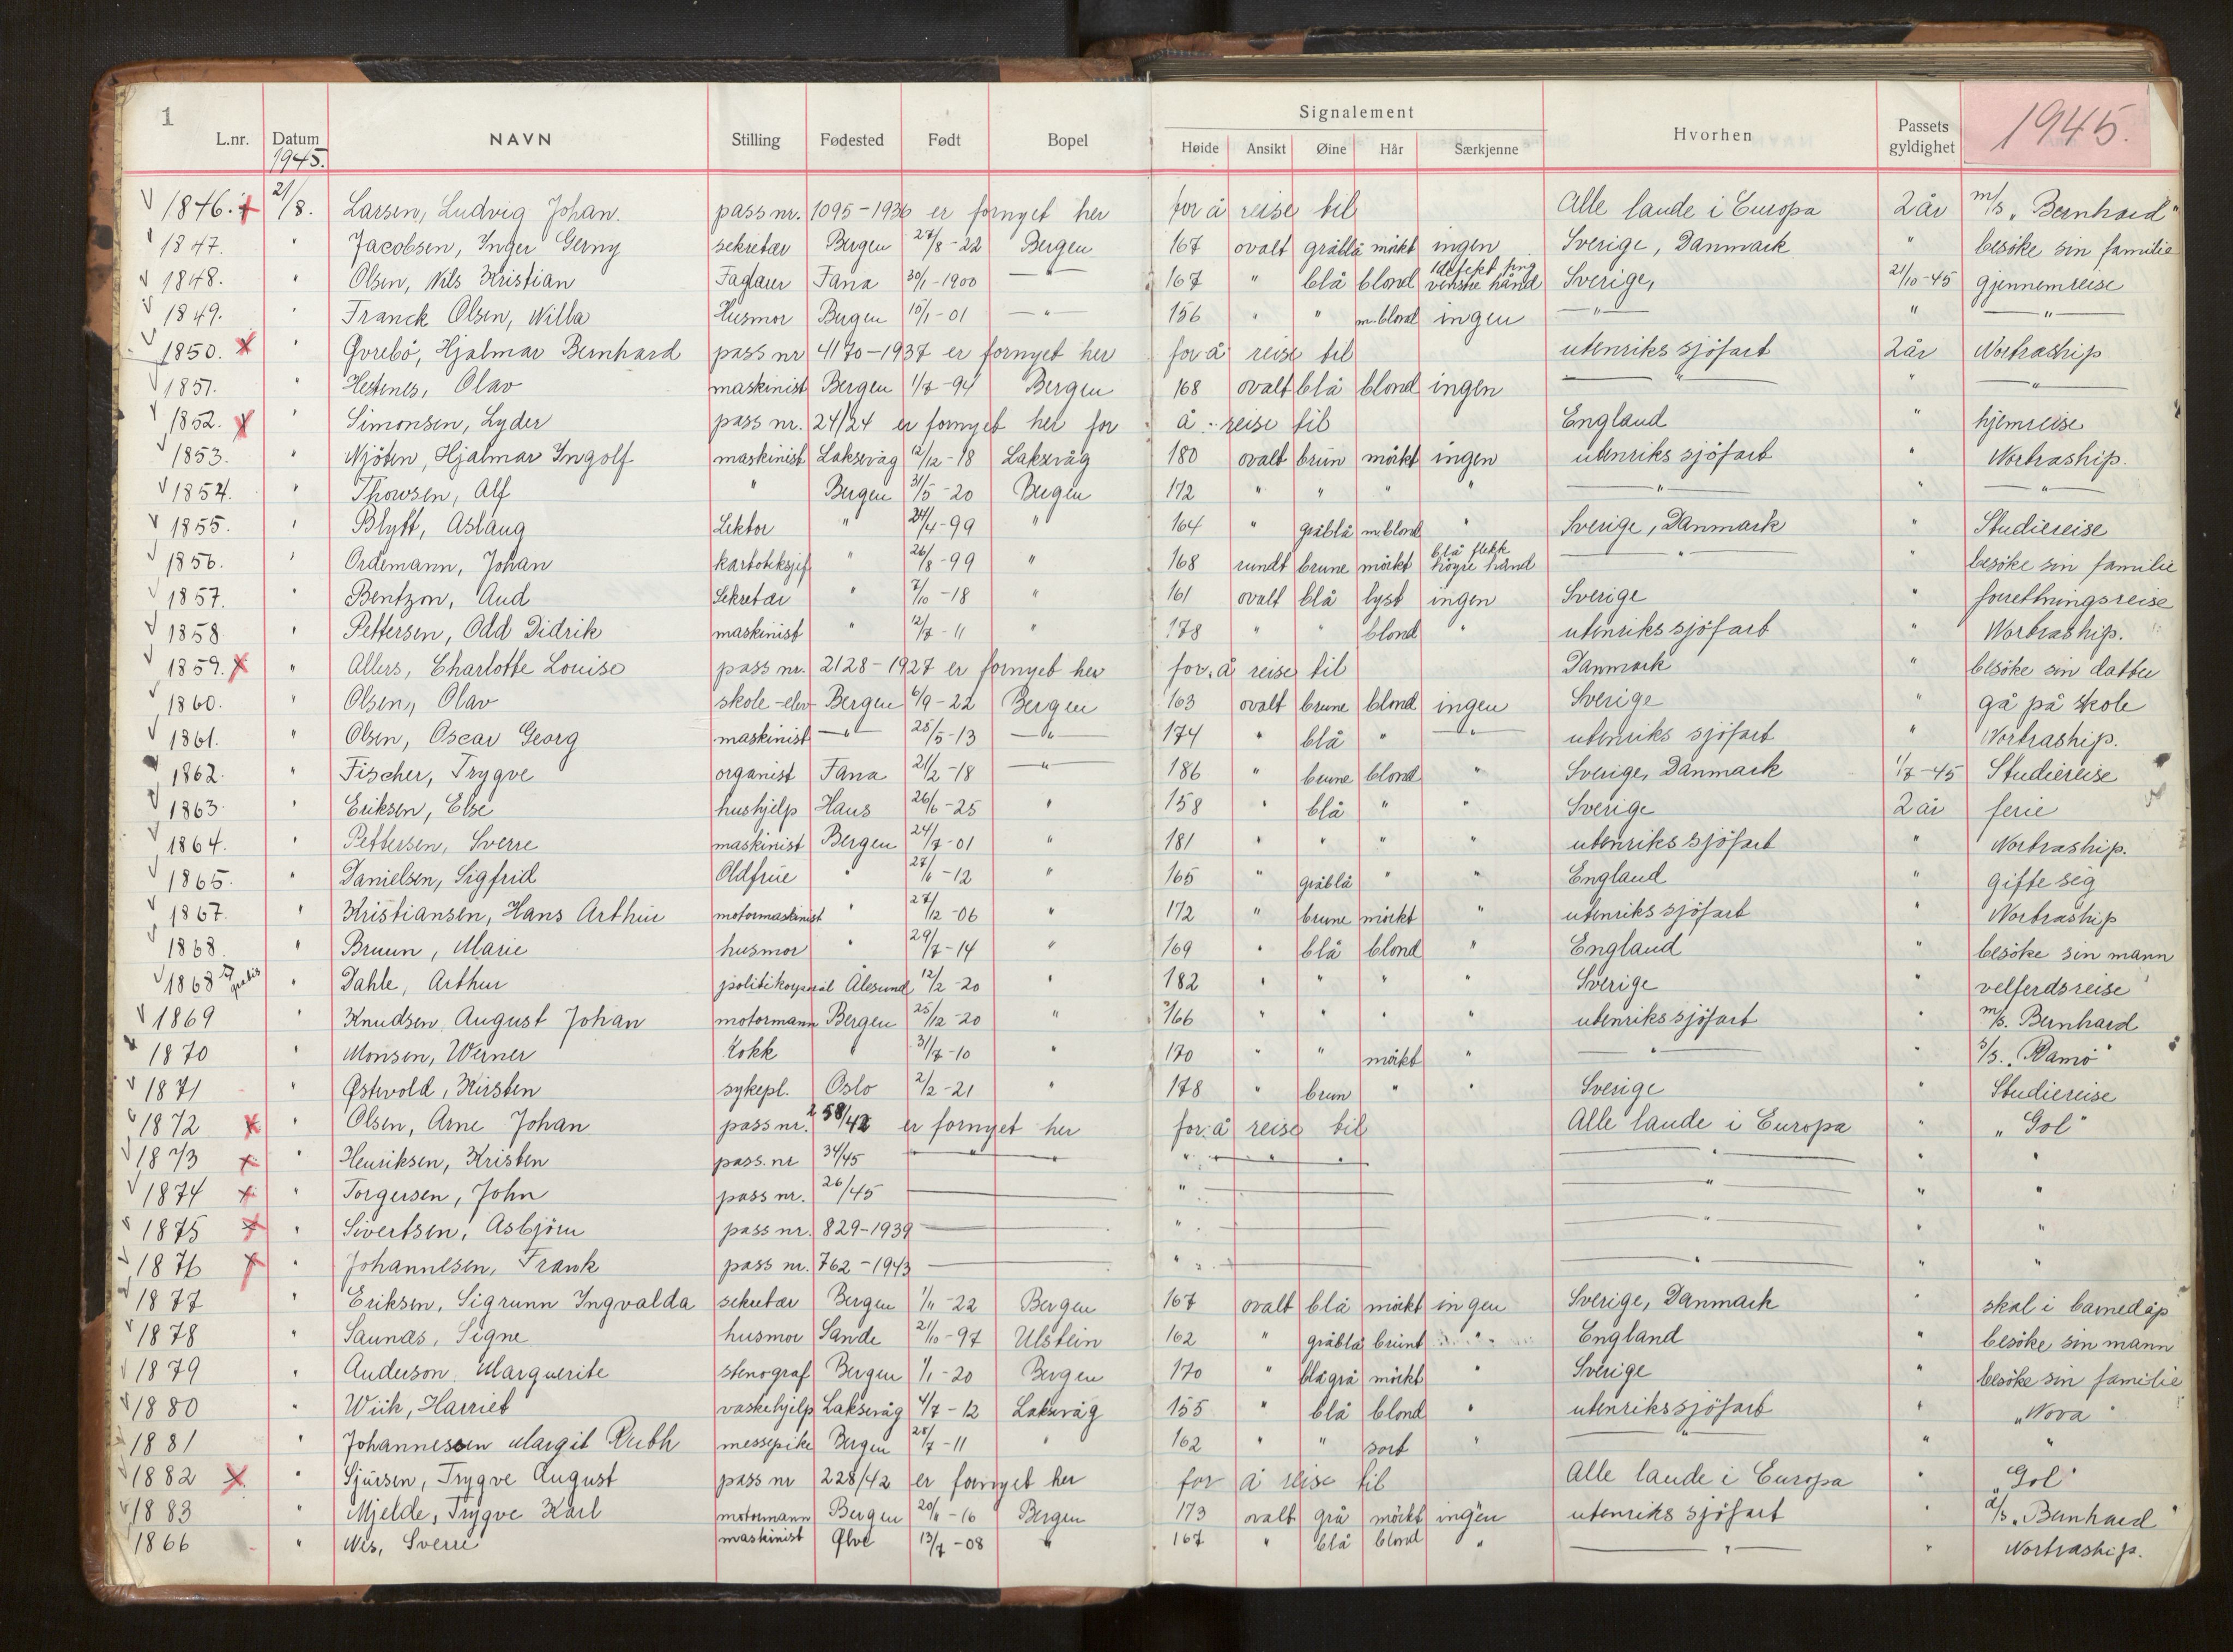 1
L.nr. Datum NAVN Stilling Fødested Født Bopel Signalement Høide Ansikt Øine Hår Særkjenne Hvorhen Passets gyldighet 1945.
1945.
V 1846. 21/8. Larsen, Ludvig Johan. pass nr. 1095-1936 er fornyet her for å reise til Alle lande i Europa 2 år m/s „Bernhard"
V 1847. " Jacobsen, Inger Gerny sekretær Bergen 27/8-22 Bergen 167 ovalt gråblå mörkt ingen Sverige, Danmark " besöke sin familie
V 1848. " Olsen, Nils Kristian Faglærer Fana 30/1-1900 " 167 " blå blond 1 defekt fing venstre hånd Sverige, 21/10-45 gjennemreise
V 1849. " Franck Olsen, Willa Husmor Bergen 15/1-01 " 156 " " m.blond ingen " " "
V 1850. x " Gvrebö, Hjalmar Bernhard pass nr 4170-1937 er fornyet her for å reise til utenriks sjöfart 2 år Nortraship
V 1851. " Hestenes, Olav maskinist Bergen 1/7-94 Bergen 168 ovalt blå blond ingen " " "
V 1852. x " Simonsen, Lyder pass nr. 24/24 er fornyet her for å reise til England " hjemreise
V 1853. " Njöten, Hjalmar Ingolf maskinist Laksevåg 12/12-18 Laksevåg 180 ovalt brun mörkt ingen utenriks sjöfart " Nortraship.
V 1854. " Thowsen, Alf " Bergen 31/5-20 Bergen 172 " " " " " " "
V 1855. " Blytt, Aslaug Lektor " 24/4-99 " 164 " gråblå m.blond " Sverige, Danmark " Studiereise
V 1856. " Ordemann, Johan kartoteksjef " 26/8-99 " 168 rundt brune mörkt blå flekk höyre hånd " " besöke sin familie
V 1857. " Bentzon, Aud Sekretær " 7/10-18 " 161 ovalt blå lyst ingen Sverige " forretningsreise
V 1858 " Pettersen, Odd Didrik maskinist " 12/7-11 " 178 " " blond " utenriks sjöfart " Nortraship.
V 1859. x " Allers, Charlotte Louise pass nr. 2128-1927 er fornyet her for å reise til Danmark " besöke sin datter
V 1860. " Olsen, Olav skole-elev Bergen 6/9-22 Bergen 163 ovalt brune blond ingen Sverige " gå på skole
V 1861. " Olsen, Oscar Georg maskinist " 25/5-13 " 174 " blå " " utenriks sjöfart " Nortraship.
1862. " Fischer, Trygve organist Fana 21/2-18 " 186 " brune blond " Sverige, Danmark 1/7-45 Studiereise
V 1863. " Eriksen, Else hushjelp Haus 26/6-25 " 158 " blå " " Sverige 2 år ferie
V 1864. " Pettersen, Sverre maskinist Bergen 24/7-01 " 181 " " " " utenriks sjöfart " Nortraship.
V 1865. " Danielsen, Sigfrid Oldfrue " 27/6-12 " 165 " gråblå " " England " gifte seg
V 1867. " Kristiansen, Hans Arthur motormaskinist " 27/12-06 " 172 " brune mörkt " utenriks sjöfart " Nortraship
V 1868. " Bruun, Marie husmor " 29/7-14 " 169 " blå blond " England " besöke sin mann
V 1868 gratis " Dahle, Arthur politikorporal Ålesund 12/2-20 " 182 " " " " Sverige " velferdsreise
V 1869 " Knudsen, August Johan motormann Bergen 25/12-20 " 166 " " " " utenriks sjöfart " m/s. Bernhard
1870 " Monsen, Werner Kokk " 31/7-10 " 170 " " mörkt " " " s/s. „Ramö"
V 1871 " Østevold, Kirsten sykepl. Oslo 2/2-21 " 178 " brun " " Sverige " Studiereise
V 1872 x " Olsen, Arne Johan pass nr. 258/42 er fornyet her for å reise til Alle lande i Europa " „Gol"
V 1873 x " Henriksen, Kristen pass. nr 34/45 " " " " "
V 1874 x " Torgersen, John pass nr. 26/45 " " " "
V 1875 x " Sivertsen, Asbjörn pass nr. 829-1939 " " " "
V 1876 x " Johannesen, Frank pass nr. 762-1943 " " " "
V 1877 " Eriksen, Sigrunn Ingvalda sekretær Bergen 1/11-22 Bergen 167 ovalt blå mörkt ingen Sverige, Danmark " skal i barnedåp
V 1878 " Saunæs, Signe husmor Sande 21/10-97 Ulstein 162 " gråblå brunt " England " besöke sin mann
V 1879 " Anderson, Marguerite stenograf Bergen 1/1-20 Bergen 170 " blågrå mörkt " Sverige " besöke sin familie
V 1880 " Wiik, Harriet vaskehjelp Laksevåg 4/7-12 Laksevåg 155 " blå blond " utenriks sjöfart " „Nova"
1881 " Johannessen Margit Ruth messepike Bergen 28/7-11 " 162 " " sort " " " "
V 1882 x " Sjursen, Trygve August pass nr 228/42 er fornyet her for å reise til Alle lande i Europa " „Gol"
V 1883 " Mjelde, Trygve Karl motormann Bergen 20/11-16 Bergen 173 ovalt grå mörkt ingen utenriks sjöfart " „Bernhard"
1866 " Nes, Sverre maskinist Ølve 13/7-08 " 167 " blå blond " " " Nortraship.